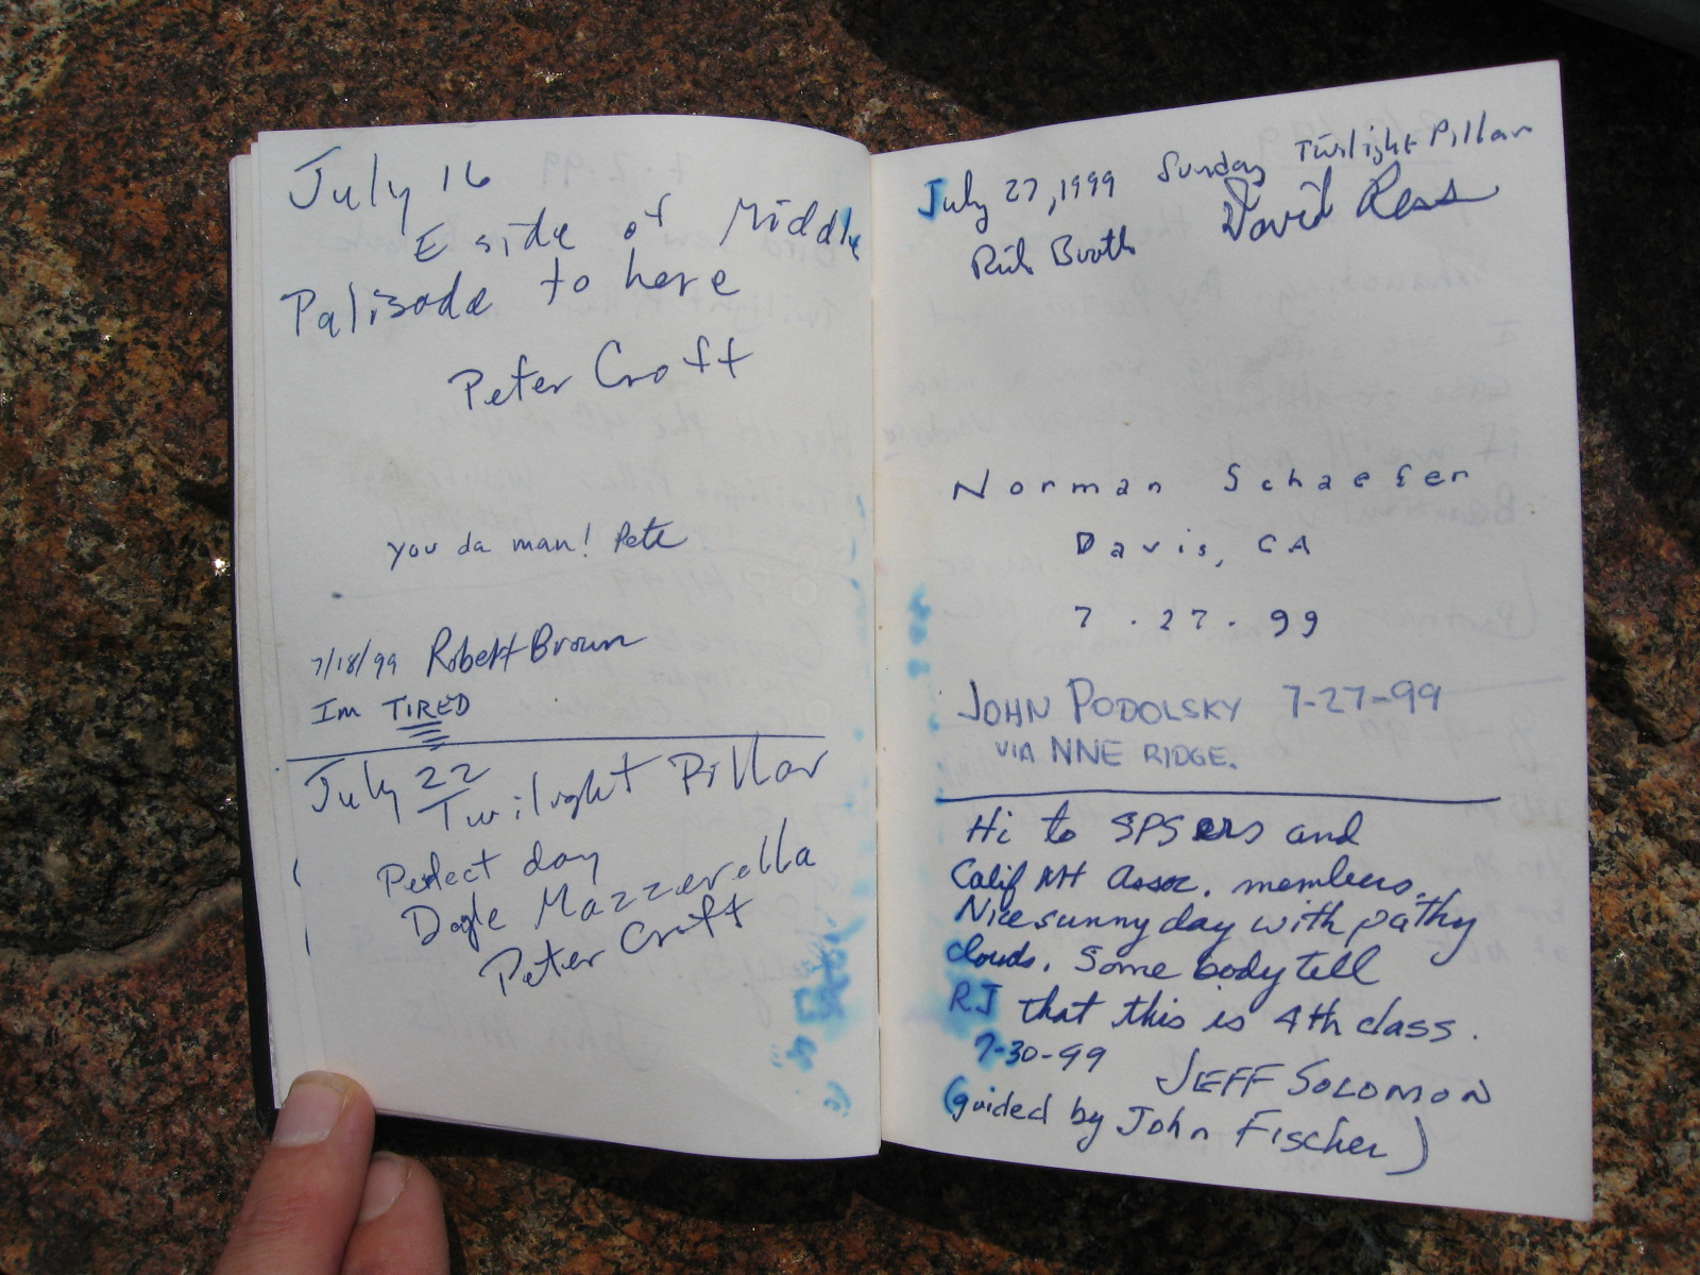 July 16
E side of Middle
Palisade to here
Peter Croft
you da man! Pete
7/18/99 Robert Brown
Im TIRED
July 22
Twilight Pillar
Perfect day
Peter Croft
July 27, 1999 Sunday Twilight Pillar
Rich Booth David Ress
Norman Schaefer
Davis, CA
7.27.99
JOHN PODOLSKY 7-27-99
VIA NNE RIDGE.
Hi to SPSers and
Calif Mt Assoc. members.
Nice sunny day with pathy
clouds. Some body tell
RJ that this is 4th class.
7-30-99
JEFF SOLOMON
(guided by John Fischer)